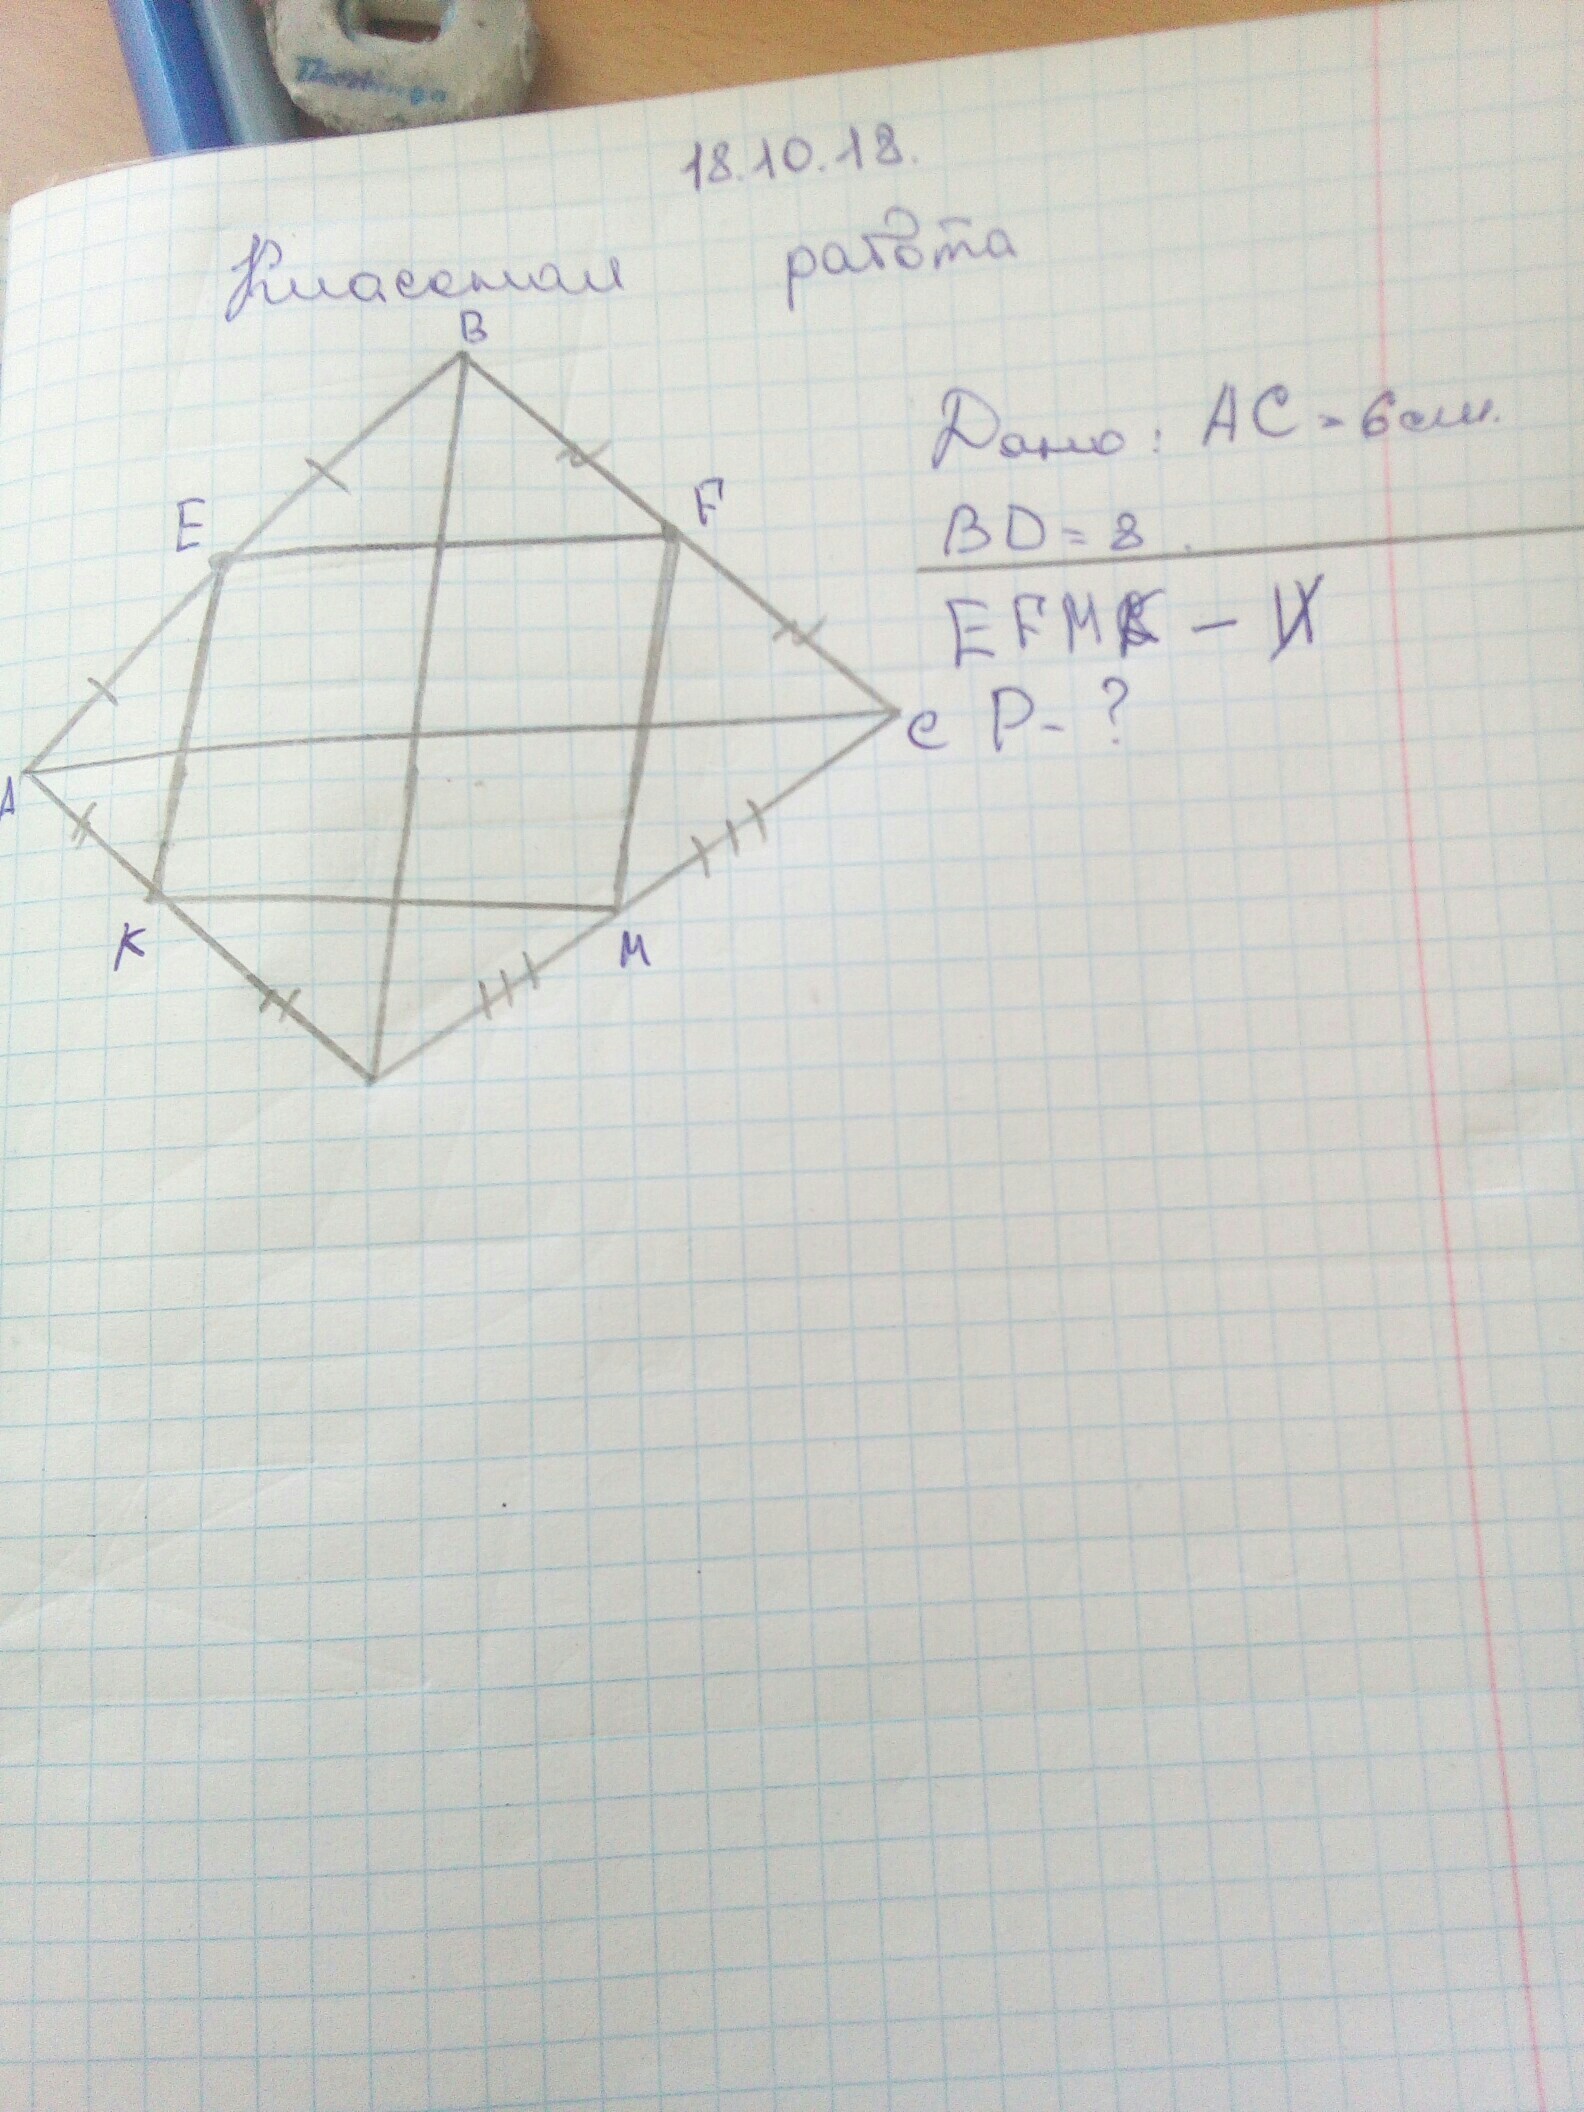 18.10.18.
Классная работа
B
E
F
A
C
K
M
Дано: AC = 6 см.
BD = 8.
EFMK –
P - ?